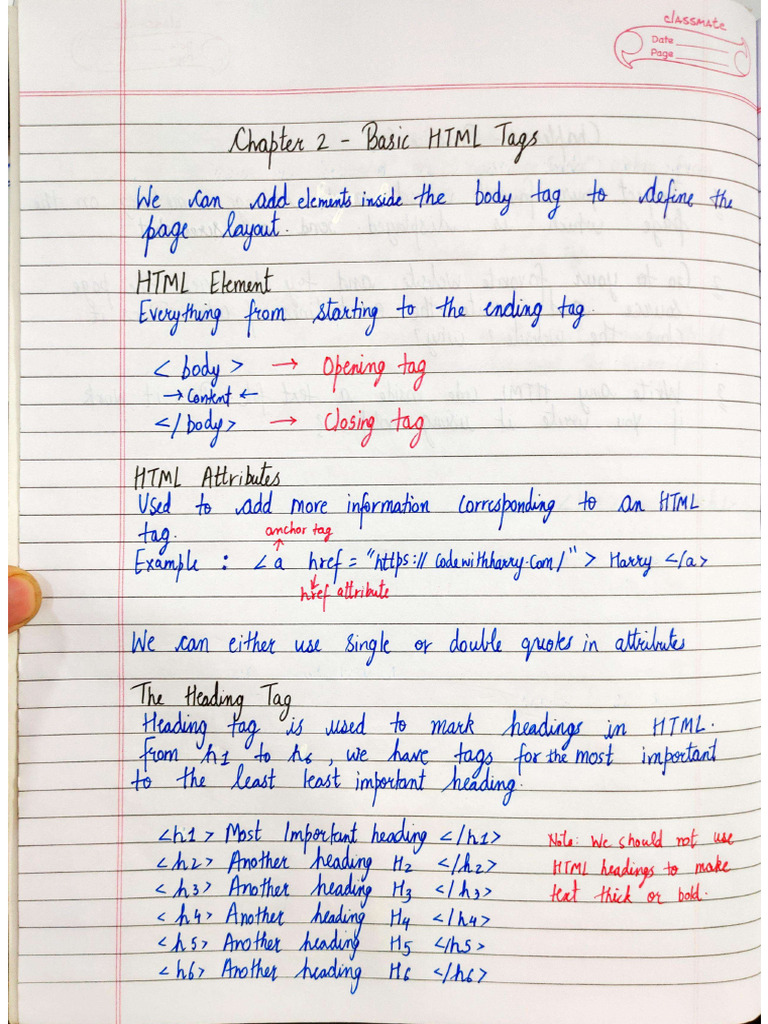 classmate
Date
Page
Chapter 2 - Basic HTML Tags
We can add elements inside the body tag to define the
page layout.
HTML Element
Everything from starting to the ending tag.
< body > → Opening tag
→ Content ←
</body> → Closing tag
HTML Attributes
Used to add more information corresponding to an HTML
tag.
anchor tag
↑
Example : < a href = "https://codewithharry.com/" > Harry </a>
↓
href attribute
We can either use single or double quotes in attributes
The Heading Tag
Heading tag is used to mark headings in HTML.
From h1 to h6, we have tags for the most important
to the least least important heading.
<h1> Most Important heading </h1>
<h2> Another heading H2 </h2>
<h3> Another heading H3 </h3>
<h4> Another heading H4 </h4>
<h5> Another heading H5 </h5>
<h6> Another heading H6 </h6>
Note: We should not use
HTML headings to make
text thick or bold.